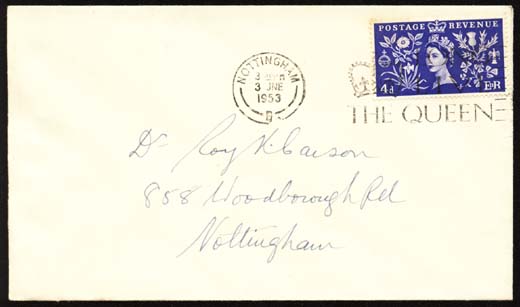 POSTAGE REVENUE
4d E R
NOTTINGHAM
3 JNE
1953
THE QUEEN
Dr Roy K. Carson
858 Woodborough Rd
Nottingham